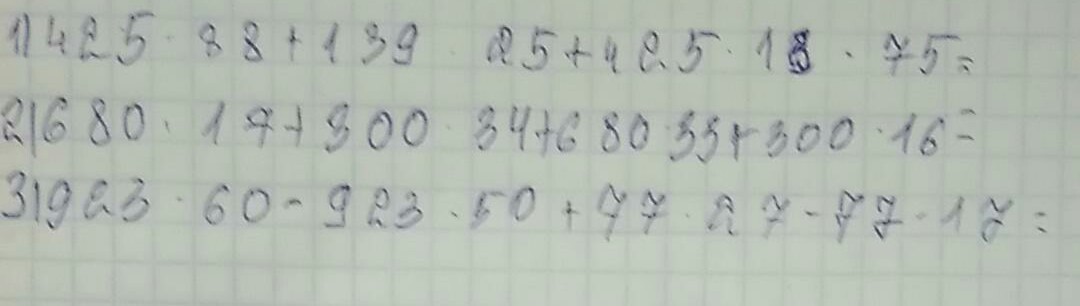 1) 425 · 38 + 139 · 25 + 425 · 13 · 75 =
2) 680 · 17 + 300 · 34 + 680 · 33 + 300 · 16 =
3) 923 · 60 - 923 · 50 + 77 · 27 - 77 · 17 =